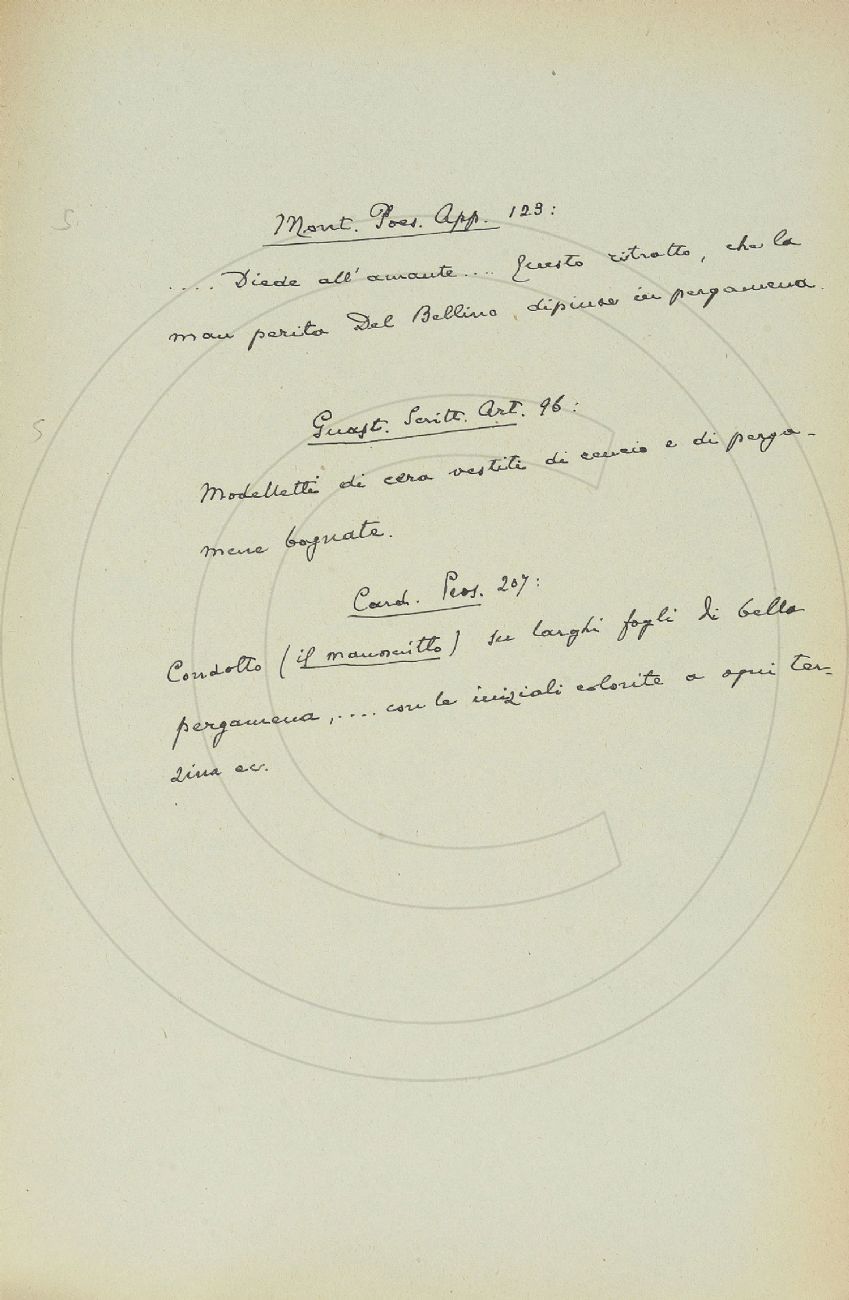 S.
Mont. Poes. App. 123:
.... Diede all'amante.... Questo ritratto, che la
man perita Del Bellino dipinse in pergamena.
S
Guast. Scritt. Art. 96:
Modelletti di cera vestiti di cencio e di perga-
mene bagnate.
Card. Pros. 207:
Condotto (il manoscritto) su larghi fogli di bella
pergamena, .... con le iniziali colorite a ogni ter-
zina ec.